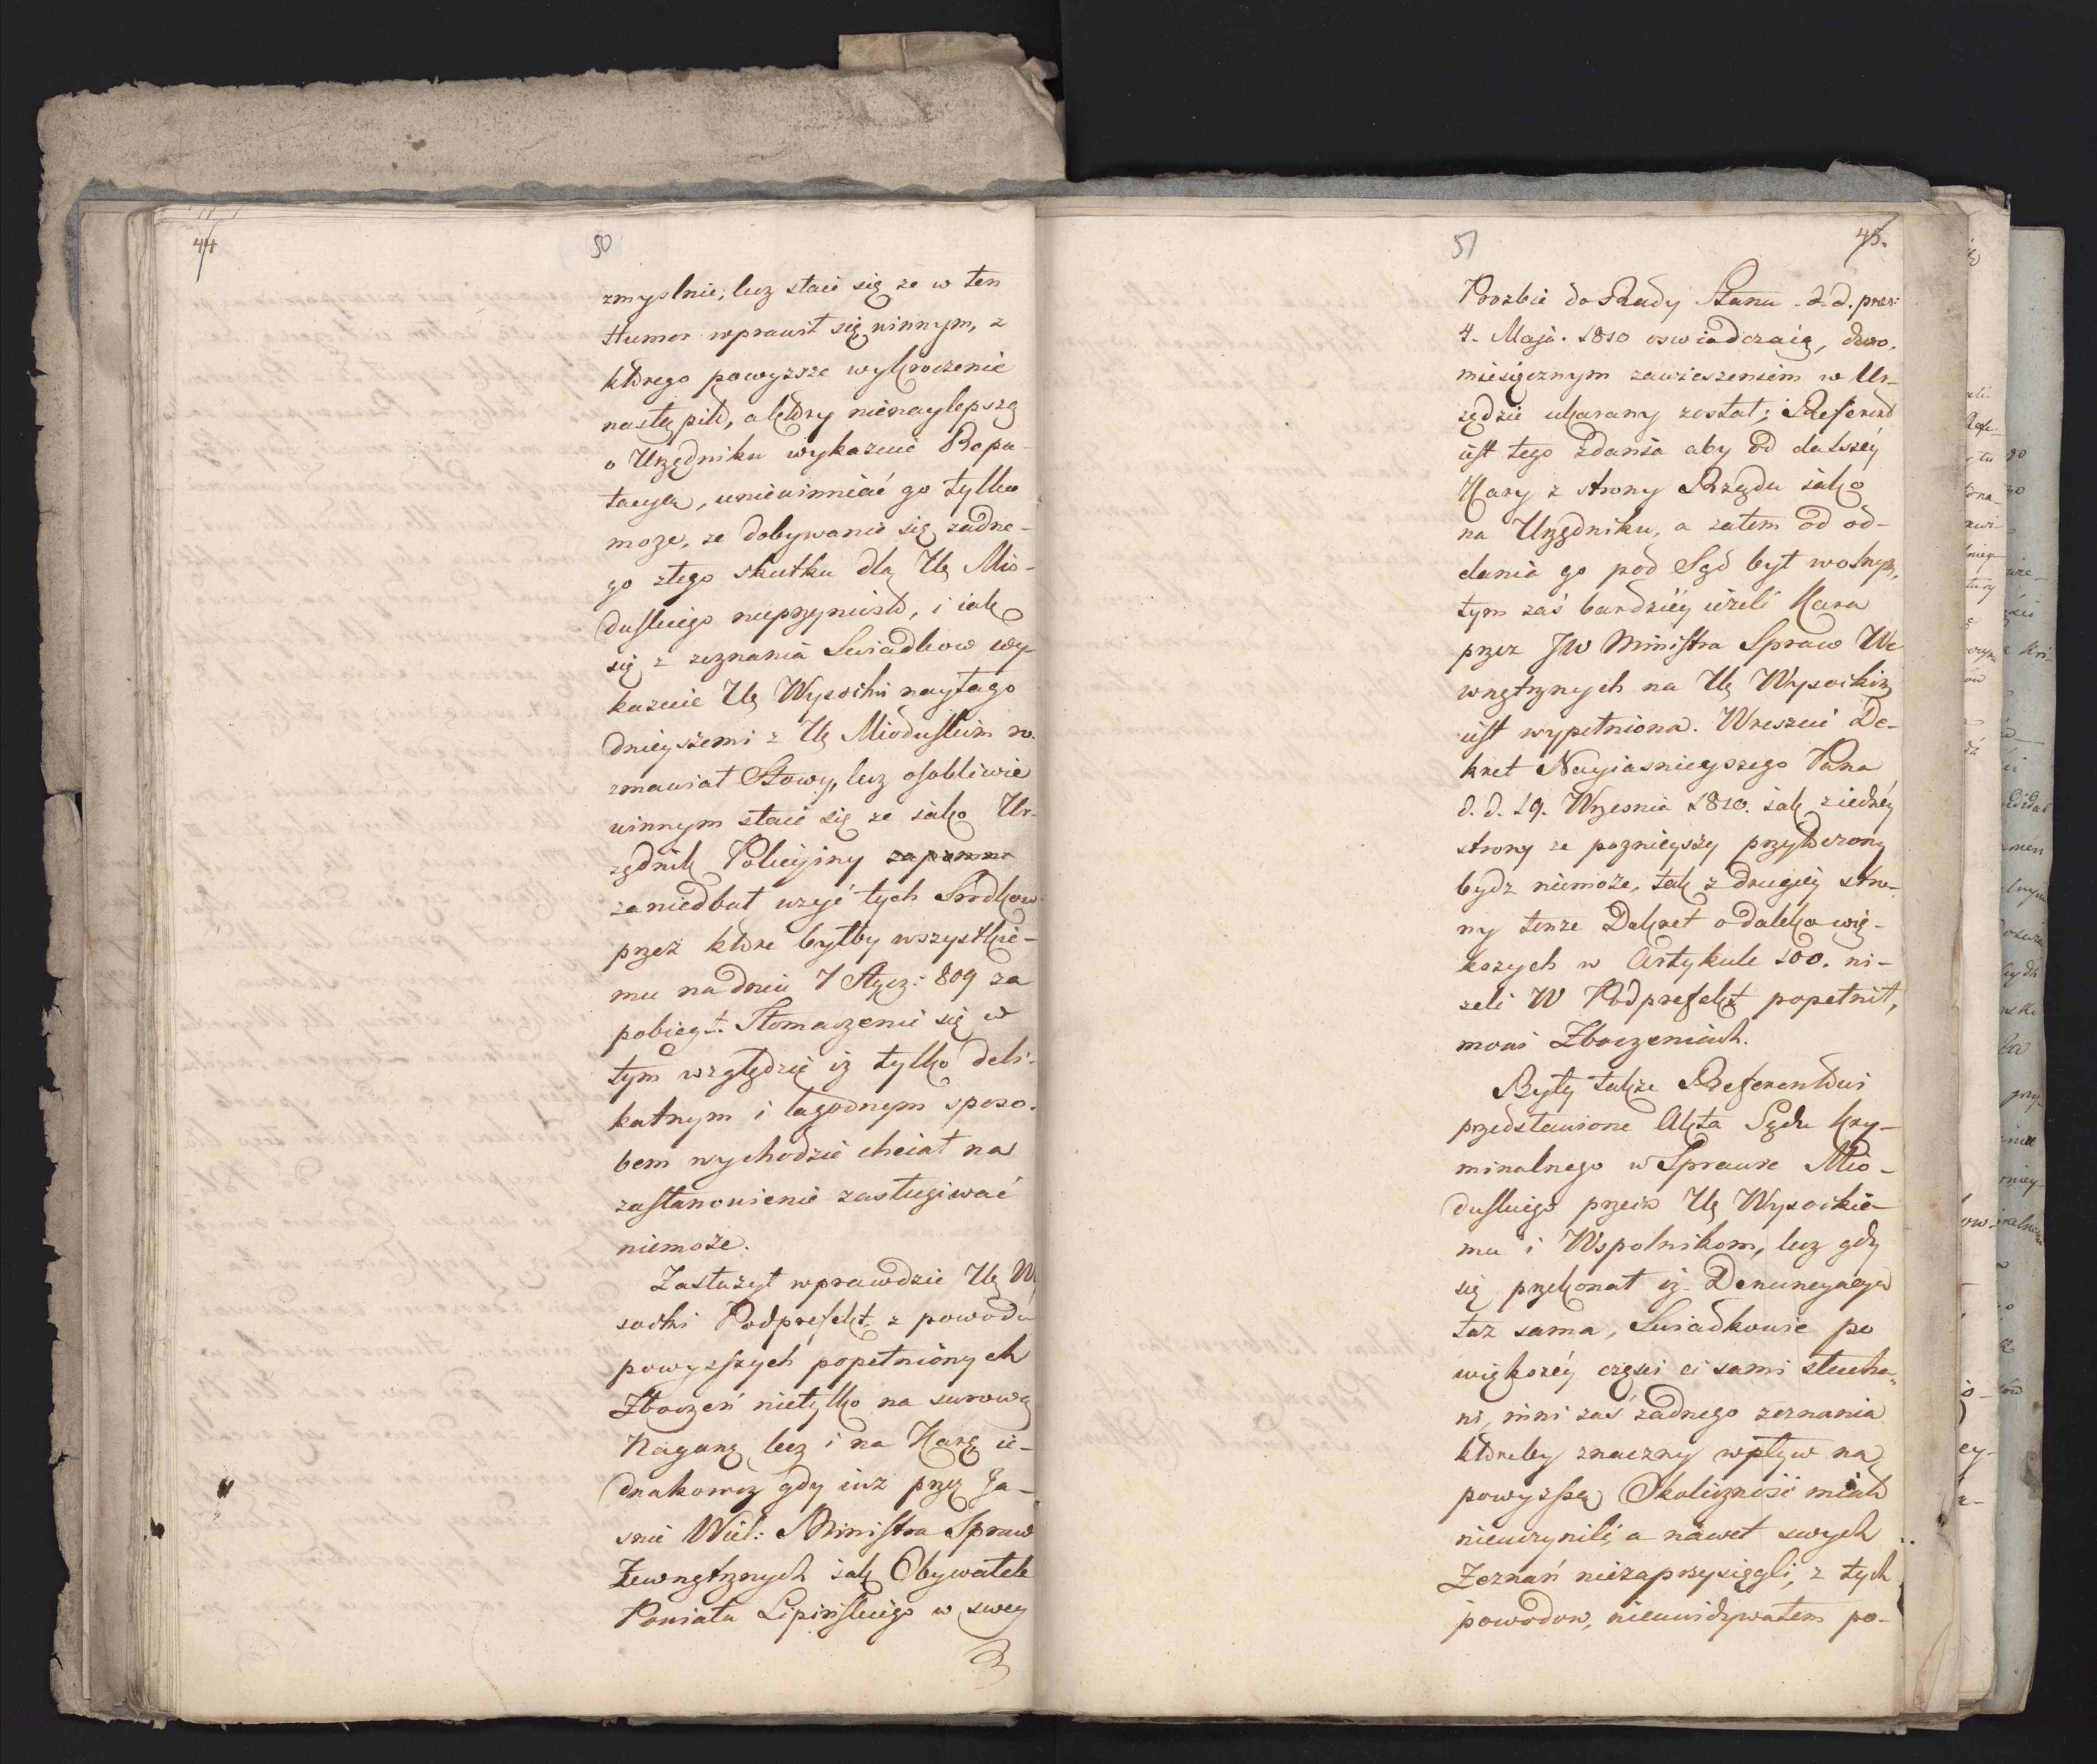 44
50
zmyslnie, lecz staie się że w ten
tłumor wprawił się winnym, z
którego powyższe wykroczenie
nastąpiło, a który nienaylepszą
o Urzędniku wykazuie Repu-
tacyą, uniewinniać go tylko
może, że dobywanie się żadne-
go złego skutku dla Ur Mio-
duskiego nieprzyniosło, i iak
się z zeznania Swiadkow wy-
kazuie Ur Wysocki nayłago
dnieyszemi z Ur Mioduskim ro-
zmawiał Słowy, lecz osobliwie
winnym staie się że iako Ur-
zędnik Policyiny
zaniedbał użyć tych Srodkow
przez które byłby wszystkie-
mu na dniu 7 Stycz: 809 za
pobiegł. Tłomaczenie się w
tym względzie iż tylko deli-
katnym i łagodnym sposo-
bem wychodzić chciał na
zastanowienie zasługiwać
niemoże.
Zasłużył wprawdzie Ur Wy
socki Podprefekt z powodu
powyższych popełnionych
Zboczeń nietylko na surową
Naganę lecz i na Karę ie-
dnakowoż gdy iuż przez Ja-
snie Wiel: Ministra Spraw
Zewnętrznych iak Obywatele
Powiatu Lipińskiego w swey
51
45.
Prozbie do Rady Stanu d. d. prez:
4. Maja. 1810 oswiadczaią, dwo-
miesięcznym zawieszeniem w Ur-
zędzie ukarany został; Referend
iest tego zdania aby od dalszéy
Kary z strony Rządu iako
na Urzędniku, a zatem od od-
dania go pod Sąd był wolnym,
tym zaś bardziéy ieżeli Kara
przez JW Ministra Spraw We
wnętrznych na Ur Wysockim
iest wypełniona. Wreszcie De-
kret Nayiasnieyszego Pana
d. d. 19. Wrzesnia 1810. iak z iednéy
strony że poznieyszy przytoczony
bydz niemoże, tak z drugiéy stro-
ny tenże Dekret o daleko wię-
kszych w Artykule 100. ni-
żeli W Podprefekt popełnił,
mowi Zboczeniach.
Były także Referentowi
przedstawione Akta Sądu Kry-
minalnego w Sprawie Mio-
duskiego przeciw Ur Wysockie-
mu i Wspolnikom, lecz gdy
się przekonał iż Denuncyacya
taż sama, Swiadkowie po
większéy części ci sami słucha-
ni, inni zaś żadnego zeznania
któreby znaczny wpływ na
powyższą Okoliczność miało
nieuczynili, a nawet swych
Zeznań niezaprzysięgli, z tych
powodow, nieuwidywałem po-